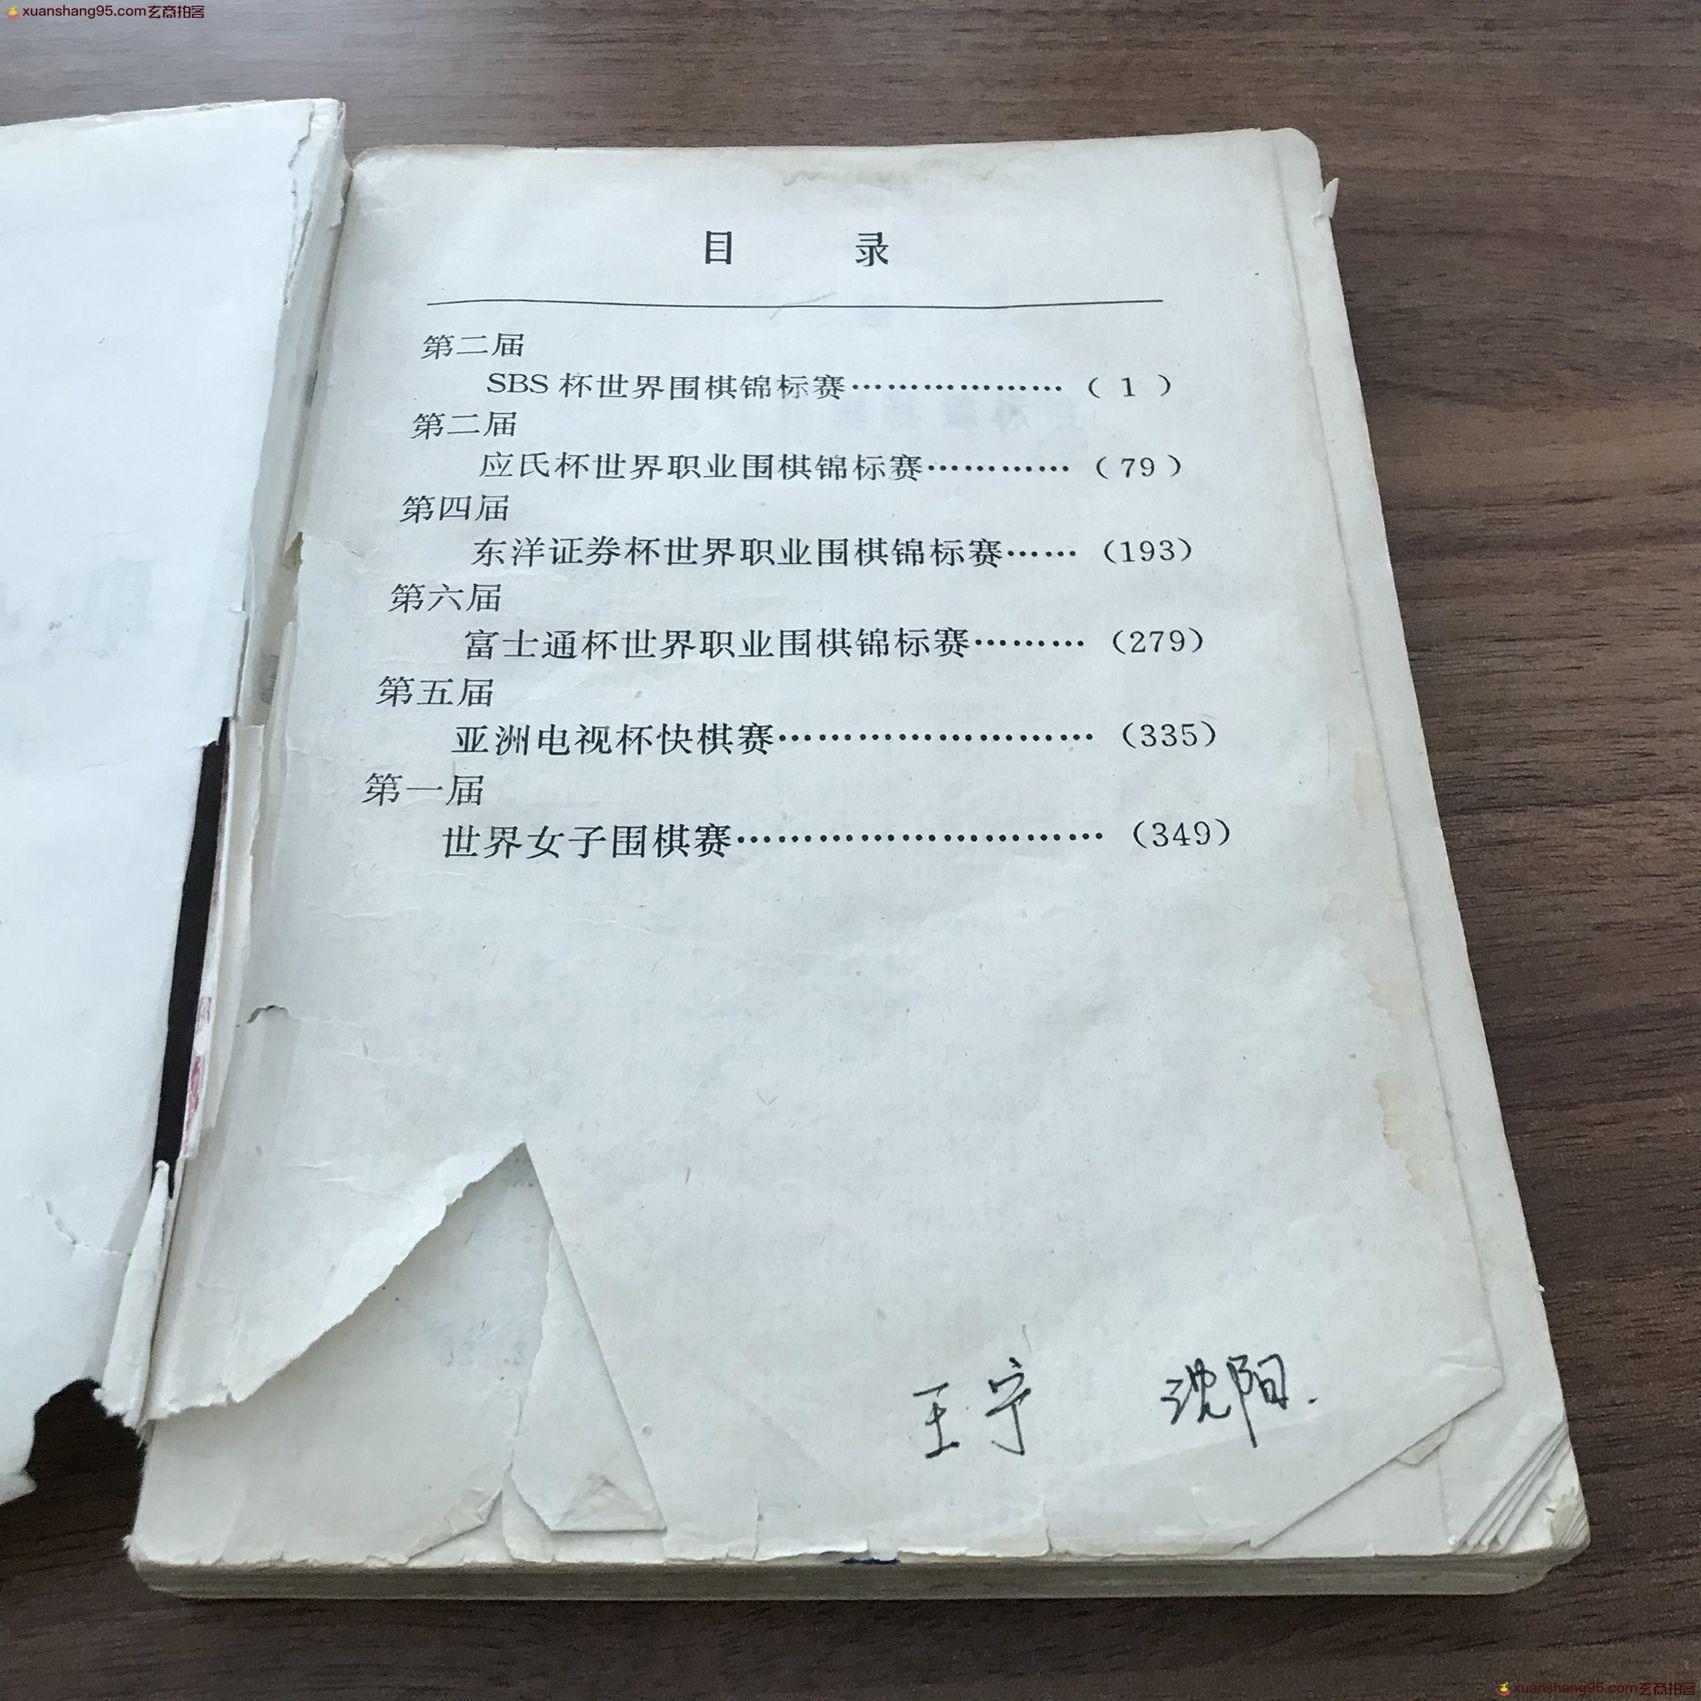 xuanshang95.com玄商拍客
目 录
第二届
SBS 杯世界围棋锦标赛………………… ( 1 )
第二届
应氏杯世界职业围棋锦标赛………… ( 79 )
第四届
东洋证券杯世界职业围棋锦标赛…… (193)
第六届
富士通杯世界职业围棋锦标赛……… (279)
第五届
亚洲电视杯快棋赛……………………… (335)
第一届
世界女子围棋赛………………………… (349)
王宁 沈阳.
xuanshang95.com玄商拍客